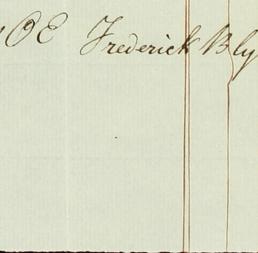 OE Frederick Bly